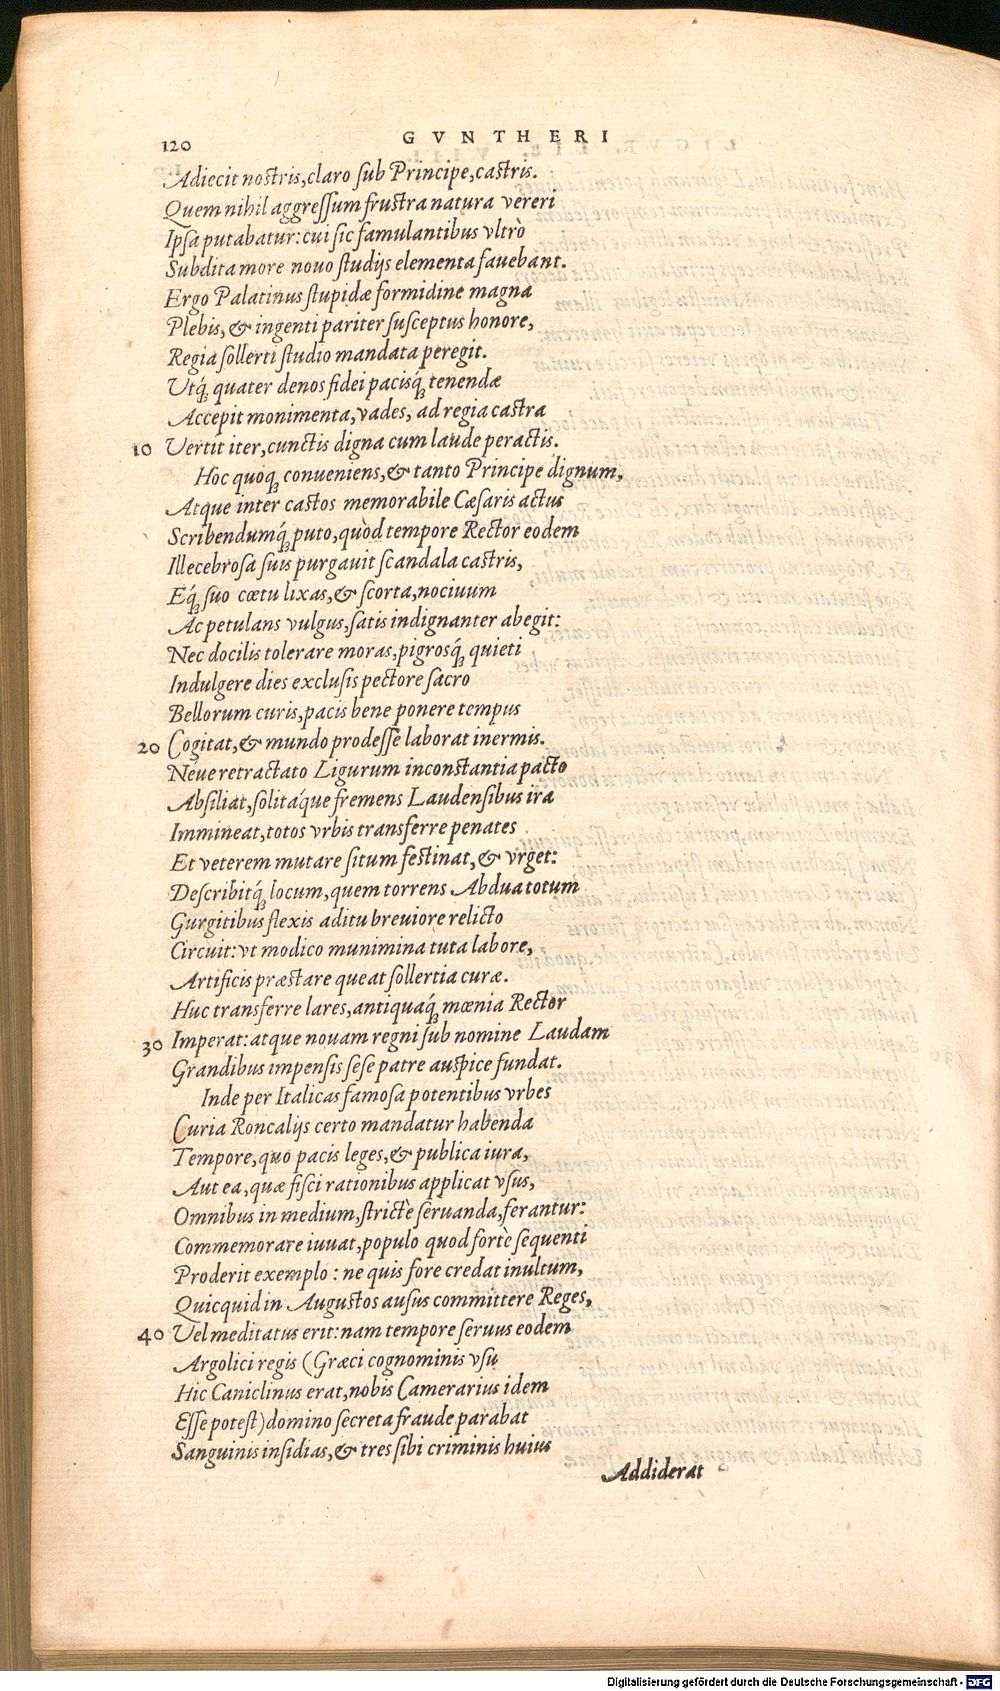 120 GVNTHERI
Adiecit nostris, claro sub Principe, castris.
Quem nihil aggressum frustra natura vereri
Ipsa putabatur: cui sic famulantibus vltrò
Subdita more nouo studijs elementa fauebant.
Ergo Palatinus stupidæ formidine magna
Plebis, & ingenti pariter susceptus honore,
Regia sollerti studio mandata peregit.
Utq́; quater denos fidei pacisq́; tenendæ
Accepit monimenta, vades, ad regia castra
10 Vertit iter, cunctis digna cum laude peractis.
Hoc quoq; conueniens, & tanto Principe dignum,
Atque inter castos memorabile Cæsaris actus
Scribendumq́; puto, quòd tempore Rector eodem
Illecebrosa suis purgauit scandala castris,
Eq́; suo cœtu lixas, & scorta, nociuum
Ac petulans vulgus, satis indignanter abegit:
Nec docilis tolerare moras, pigrosq́; quieti
Indulgere dies exclusis pectore sacro
Bellorum curis, pacis bene ponere tempus
20 Cogitat, & mundo prodesse laborat inermis.
Neue retractato Ligurum inconstantia pacto
Absiliat, solitáque fremens Laudensibus ira
Immineat, totos vrbis transferre penates
Et veterem mutare situm festinat, & vrget:
Describitq́; locum, quem torrens Abdua totum
Gurgitibus flexis aditu breuiore relicto
Circuit: vt modico munimina tuta labore,
Artificis præstare queat sollertia curæ.
Huc transferre lares, antiquaq́; mœnia Rector
30 Imperat: atque nouam regni sub nomine Laudam
Grandibus impensis sese patre auspice fundat.
Inde per Italicas famosa potentibus vrbes
Curia Roncalijs certo mandatur habenda
Tempore, quo pacis leges, & publica iura,
Aut ea, quæ fisci rationibus applicat vsus,
Omnibus in medium, strictè seruanda, ferantur:
Commemorare iuuat, populo quod fortè sequenti
Proderit exemplo: ne quis fore credat inultum,
Quicquid in Augustos ausus committere Reges,
40 Vel meditatus erit: nam tempore seruus eodem
Argolici regis (Græci cognominis vsu
Hic Caniclinus erat, nobis Camerarius idem
Esse potest) domino secreta fraude parabat
Sanguinis insidias, & tres sibi criminis huius
Addiderat
Digitalisierung gefördert durch die Deutsche Forschungsgemeinschaft - DFG